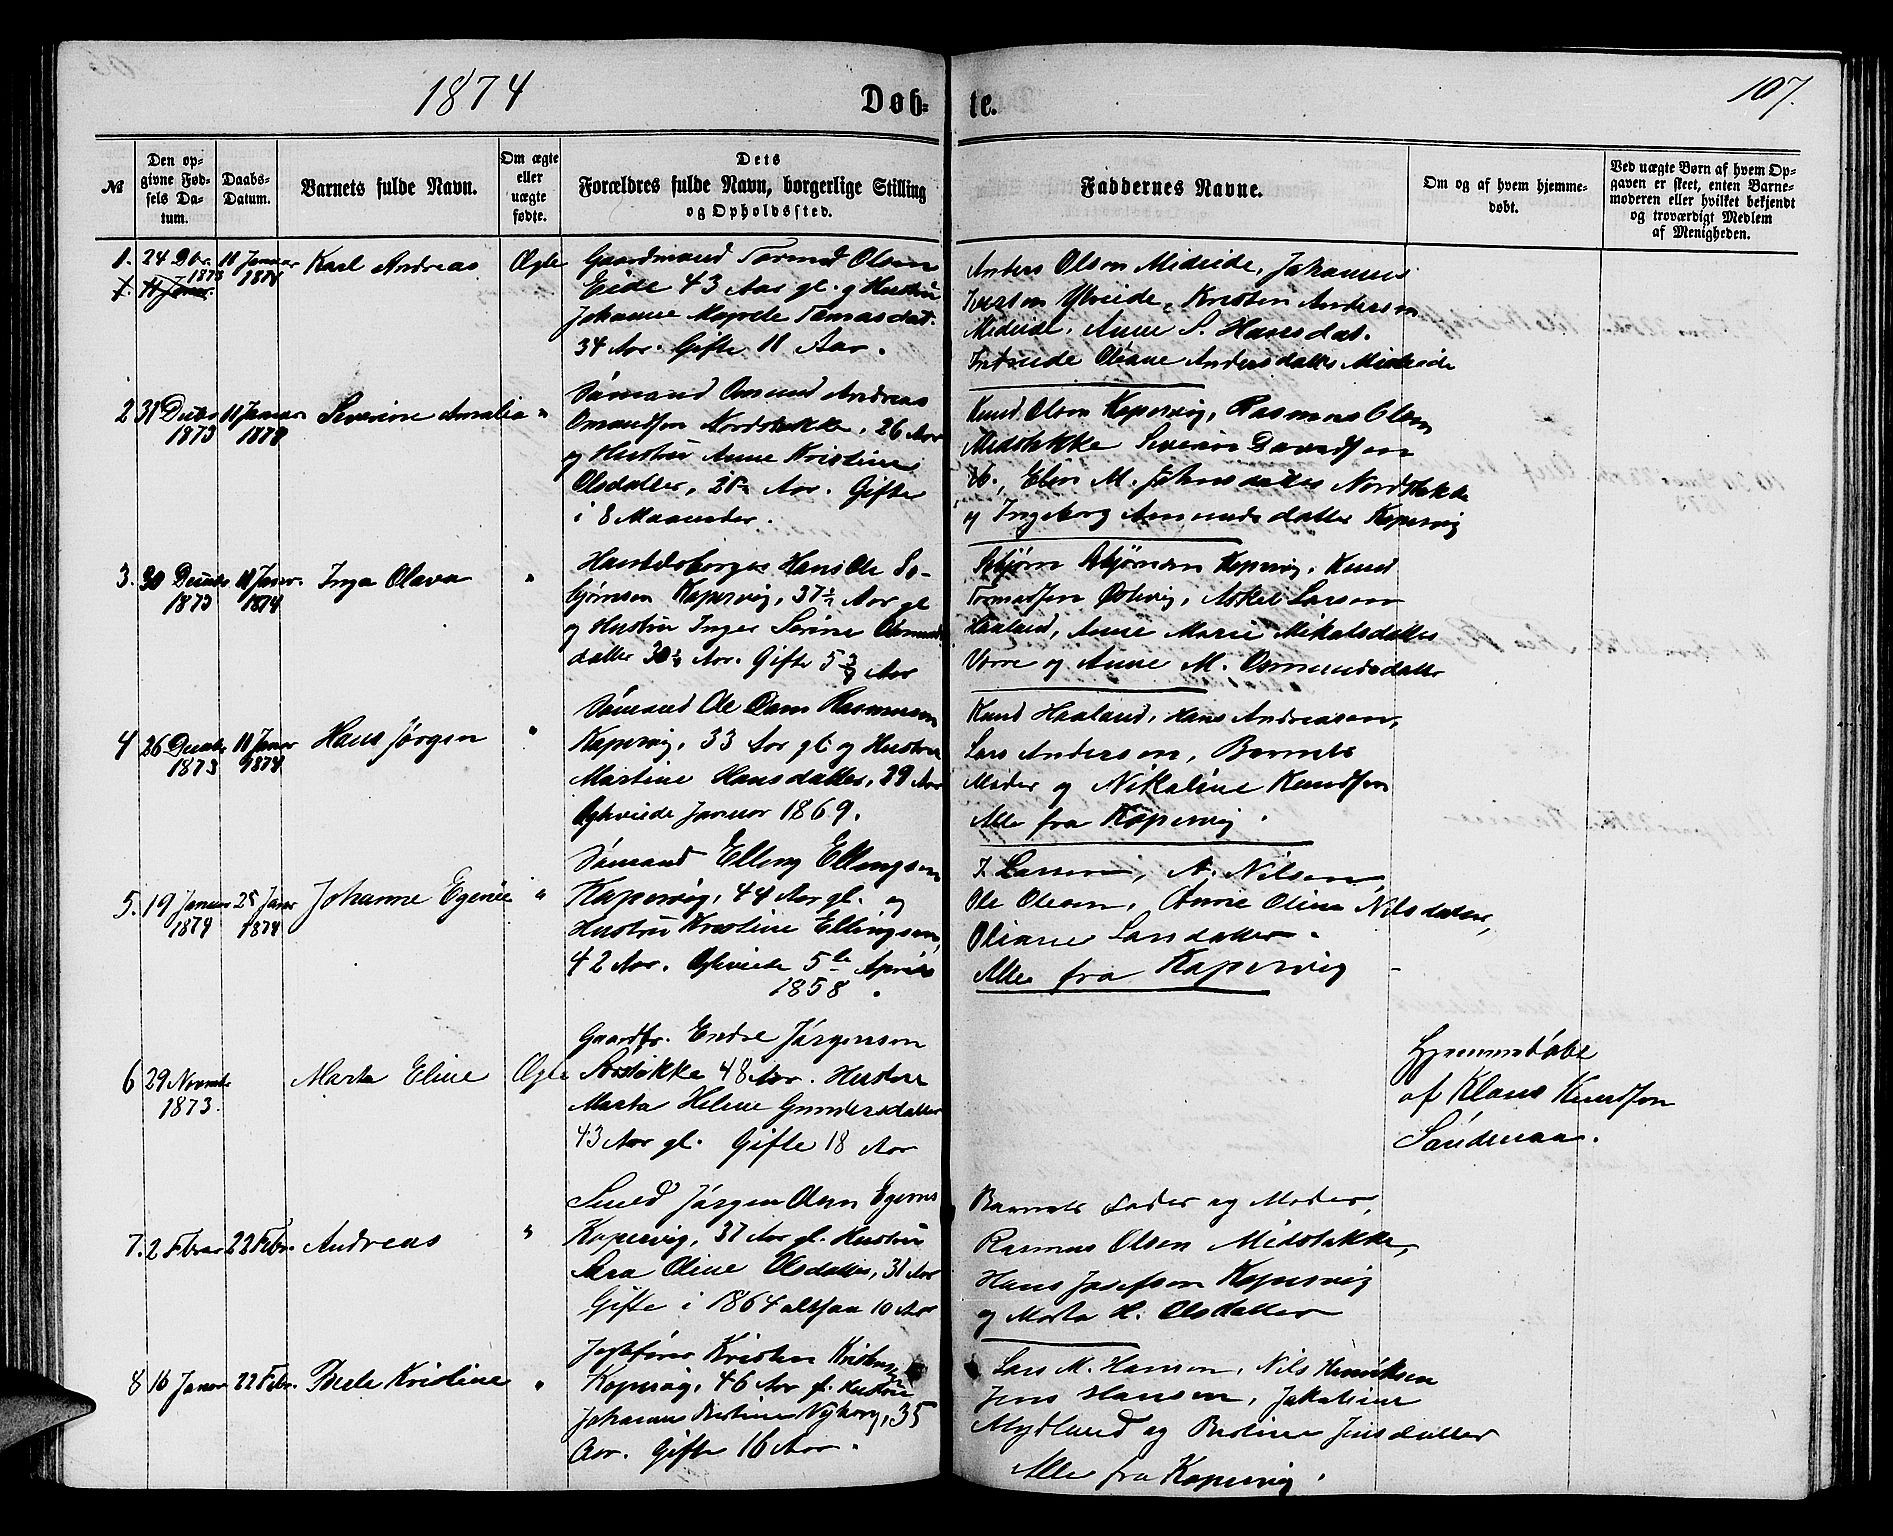 1874
Døb-
te.
107.
№
Den op-
givne Fød-
sels Da-
tum.
Daabs-
Datum.
Barnets fulde Navn.
Om ægte
eller
uægte
fødte.
Dets
Forældres fulde Navn, borgerlige Stilling
og Opholdssted.
Faddernes Navne.
Om og af hvem hjemme-
døbt.
Ved uægte Børn af hvem Op-
gaven er skeet, enten Barne-
moderen eller hvilket bekjendt
og troværdigt Medlem
af Menigheden.
1. 24 Dbr. 1873
11 Januar 1874
Karl Andreas
Ægte
Gaardmand Tormod Olsen
Eide 43 Aar gl. og Hustru
Johanne Tomasdat.
34 Aar. Gifte 11 Aar.
Anders Olson Mideide, Johannes
Kristen Anderson
Mideide, Anne S. Hansdat.
Oliane Andersdatter Mideide
2 31 Decbr 1873
11 Januar 1874
Severine Amalia
"
Sømand Omund Andreas
Omundsen Nordstokke, 26 Aar
og Hustru Anne Kristine
Olsdatter, Aar. Gifte
i 8 Maaneder.
Knud Olsen Kopervig, Rasmus Olsen
Midstokke Severin Davidsen
Elen M. Johnsdatter Nordstokke
og Ingeborg Amundsdatter Kopervig
3. 30 Decbr 1873
11 Januar 1874
Inga Olava
"
Handelsborger Hans Ole
Kopervig, 37½ Aar gl
og Hustru Inger Serine Osmunds
datter 30½ Aar. Gifte 5 Aar
Kopervig, Knud
Tormodsen Østevig, Askel Larsen
Haaland, Anne Marie Mikalsdatter
Vorre og Anne M. Osmundsdatter
4 26 Decbr 1873
11 Januar 1874
Hans Jørgen
"
Sømand Ole Dam Rasmussen
Kopervig, 33 Aar gl og Hustru
Martine Hansdatter, 29 Aar
Egteviede Januar 1869.
Knud Haaland, Hans Andreasen,
Lars Anderson, Barnets
Moder og Nikoline Knudsen
Alle fra Kopervig.
5. 19 Januar 1874
25 Januar 1874
Johanne
"
Sømand Elling Ellingsen
Kopervig, 44 Aar gl. og
Hustru Kristine Ellingsen,
42 Aar. Egteviede 5te April
1858.
Larsen, A. Nilsen,
Ole Olsen, Anne Oline Nilsdatter,
Oliane Larsdatter.
Alle fra Kopervig
6 29 Novmbr 1873.
Marta Eline
Ægte
Gaardbr. Endre Jørgenson
48 Aar. Hustru
Marta Helene Gundersdatter
43 Aar gl. Gifte 18 Aar
Hjemmedøbt
af Klaus Knudson
Sandenaas.
7. 2 Febr
22 Febr.
Andreas
"
Smed Jørgen Olsen
Kopervig, 37 Aar gl. Hustru
Sara Oline Olsdatter, 31 Aar
Gifte i 1864 altsaa 10 Aar
Barnets Fader og Moder,
Rasmus Olsen Midstokke,
Hans Josefson Kopervig
og Marta H. Olsdatter
8 16 Januar
22 Febr.
Kristine
"
Jagtfører Kristen Kristensen
Kopervig, 46 Aar gl. Hustru
Johanne Nyborg, 35
Aar. Gifte 16 Aar.
Lars M. Hansen, Nils Henriksen
Jens Hansen, Jakobine
Mydland og Jensdatter
Alle fra Kopervig.